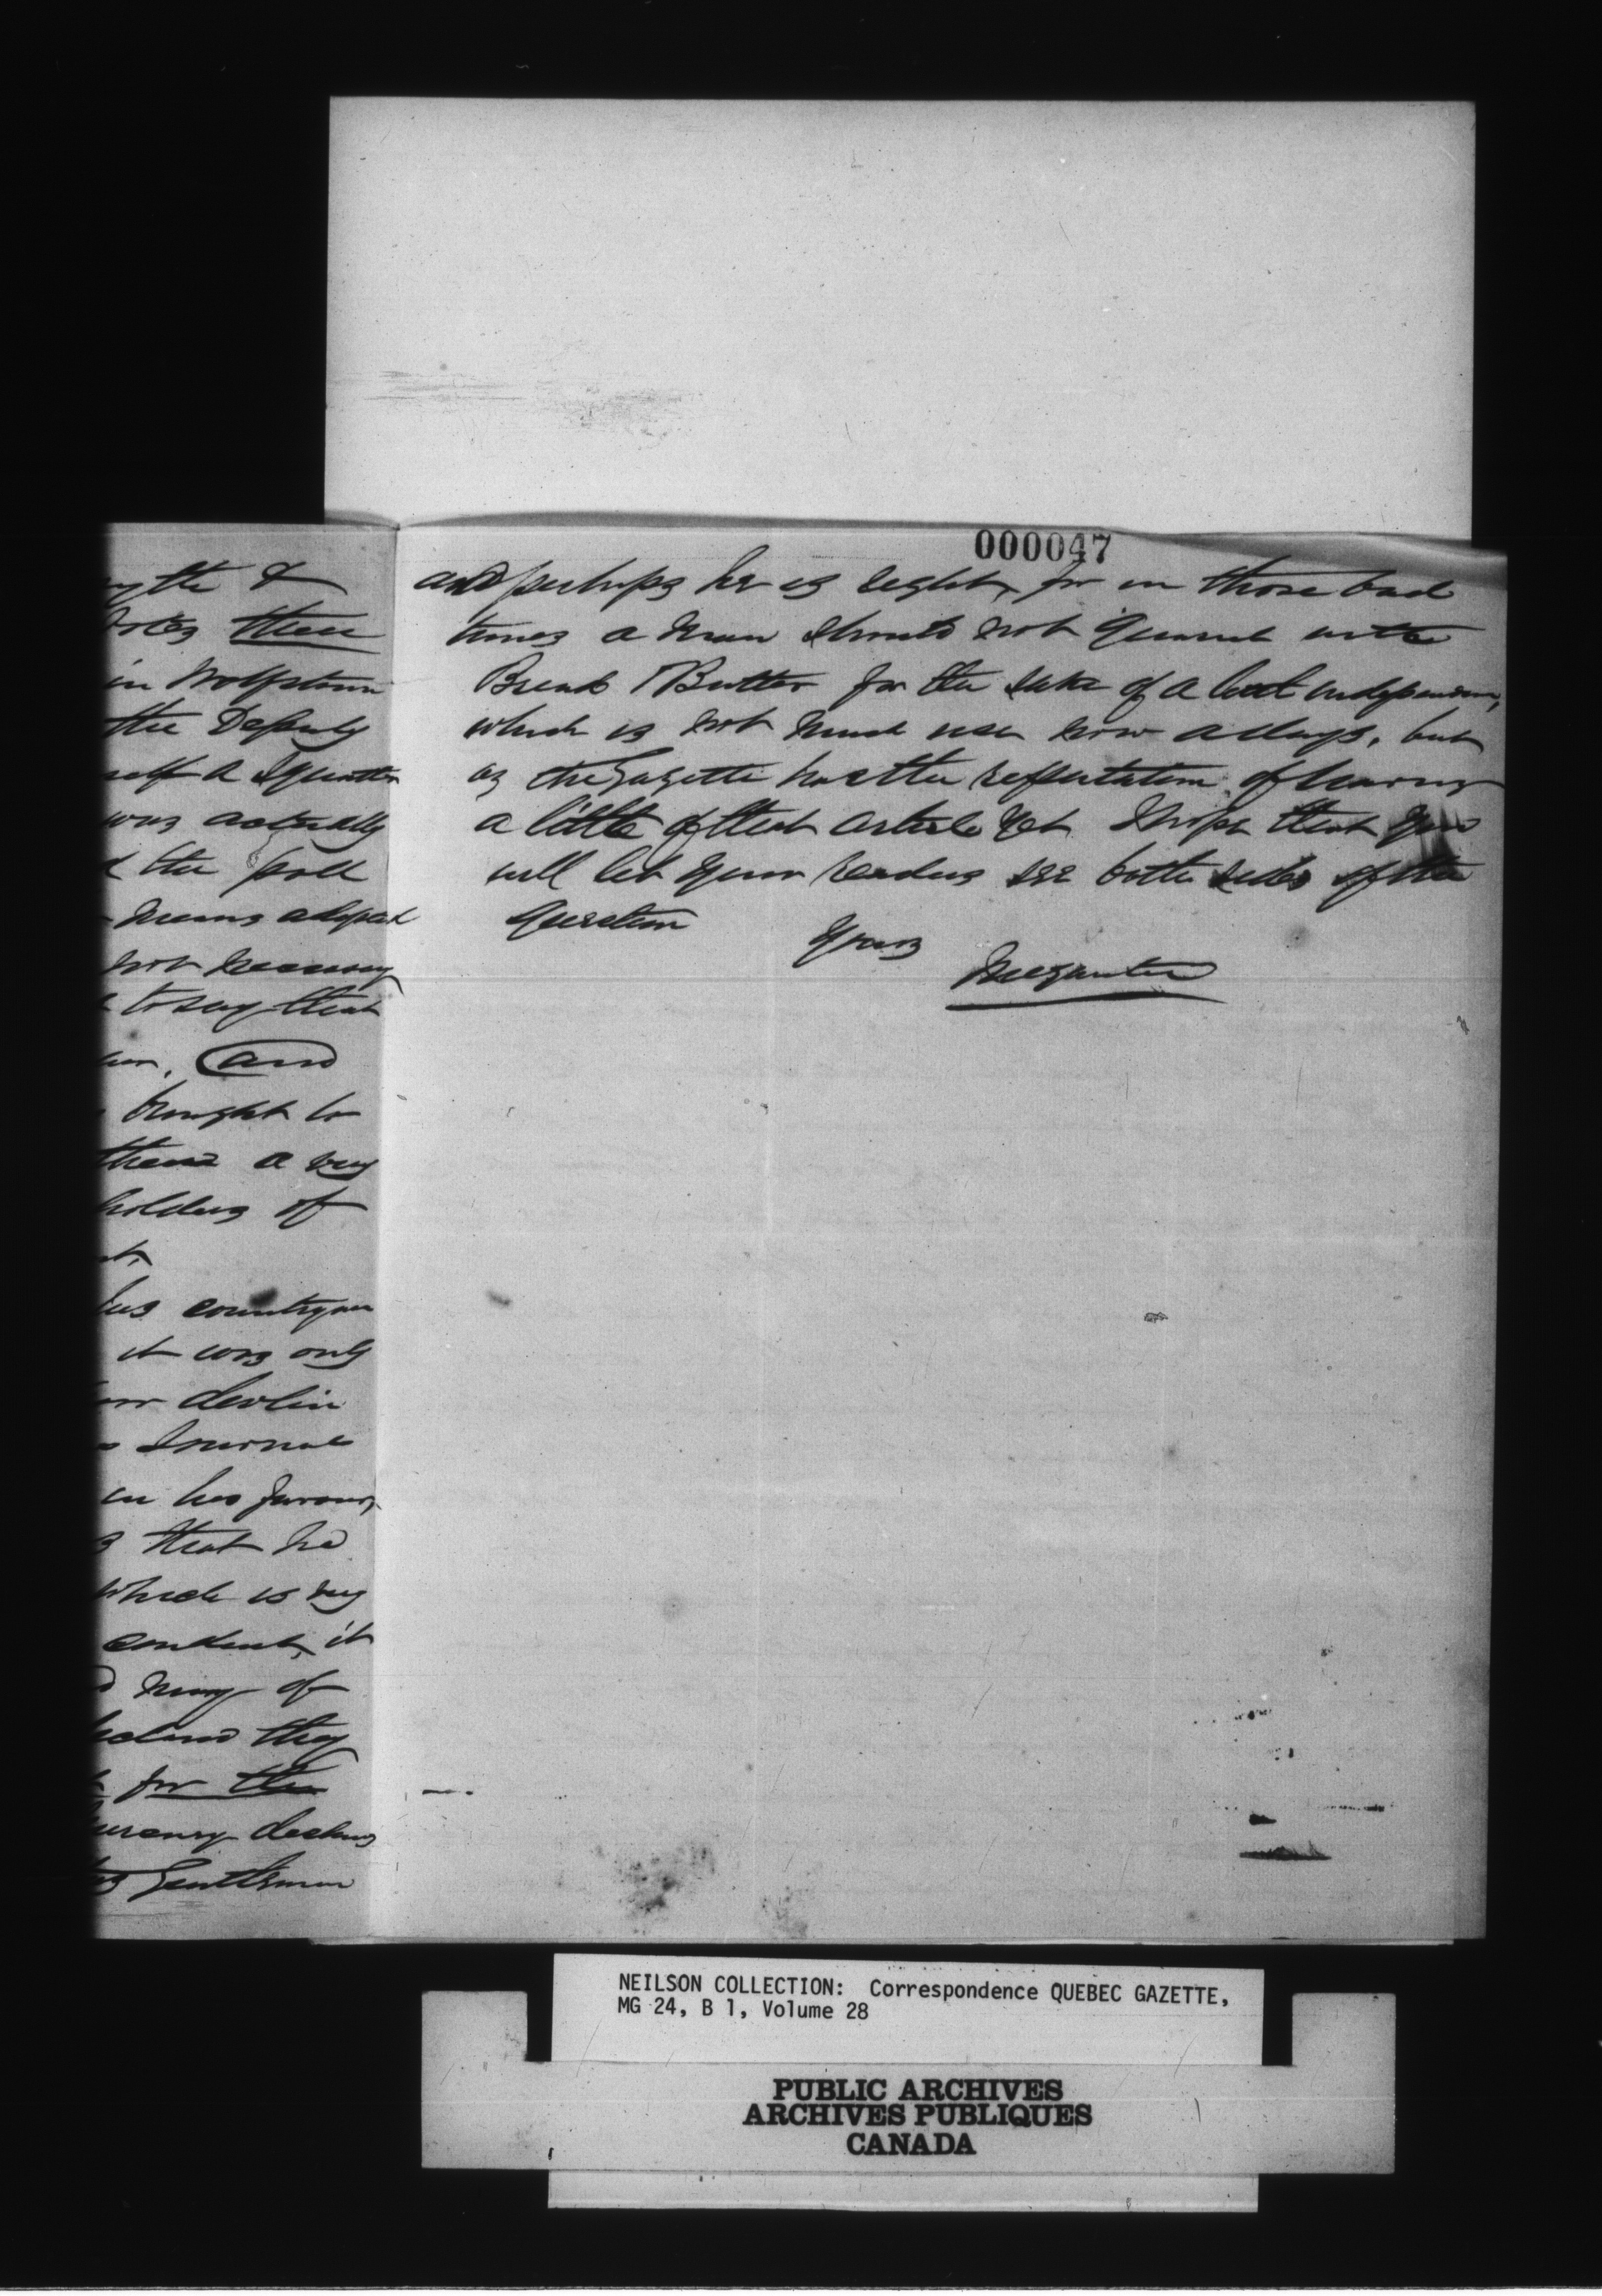 000047
and perhaps he is right, for in those bad
times a man should not quarrel with
Bread & Butter for the sake of a bit independence,
which is not much use now a days, but
as the Gazette has the reputation of having
a little of that article yet I hope that you
will let your readers see both sides of the
question
Yours
Megantic
&
votes there
in Wolfstown
the Deputy
self a Squatter
was actually
the poll
means adopted
not necessary
to say that
and
brought to
a very
holders of
his countrymen
it was only
devlin
Journal
in his favour,
that he
which is very
conduct, it
many of
they
for the
declare
Gentleman
NEILSON COLLECTION: Correspondence QUEBEC GAZETTE,
MG 24, B 1, Volume 28
PUBLIC ARCHIVES
ARCHIVES PUBLIQUES
CANADA